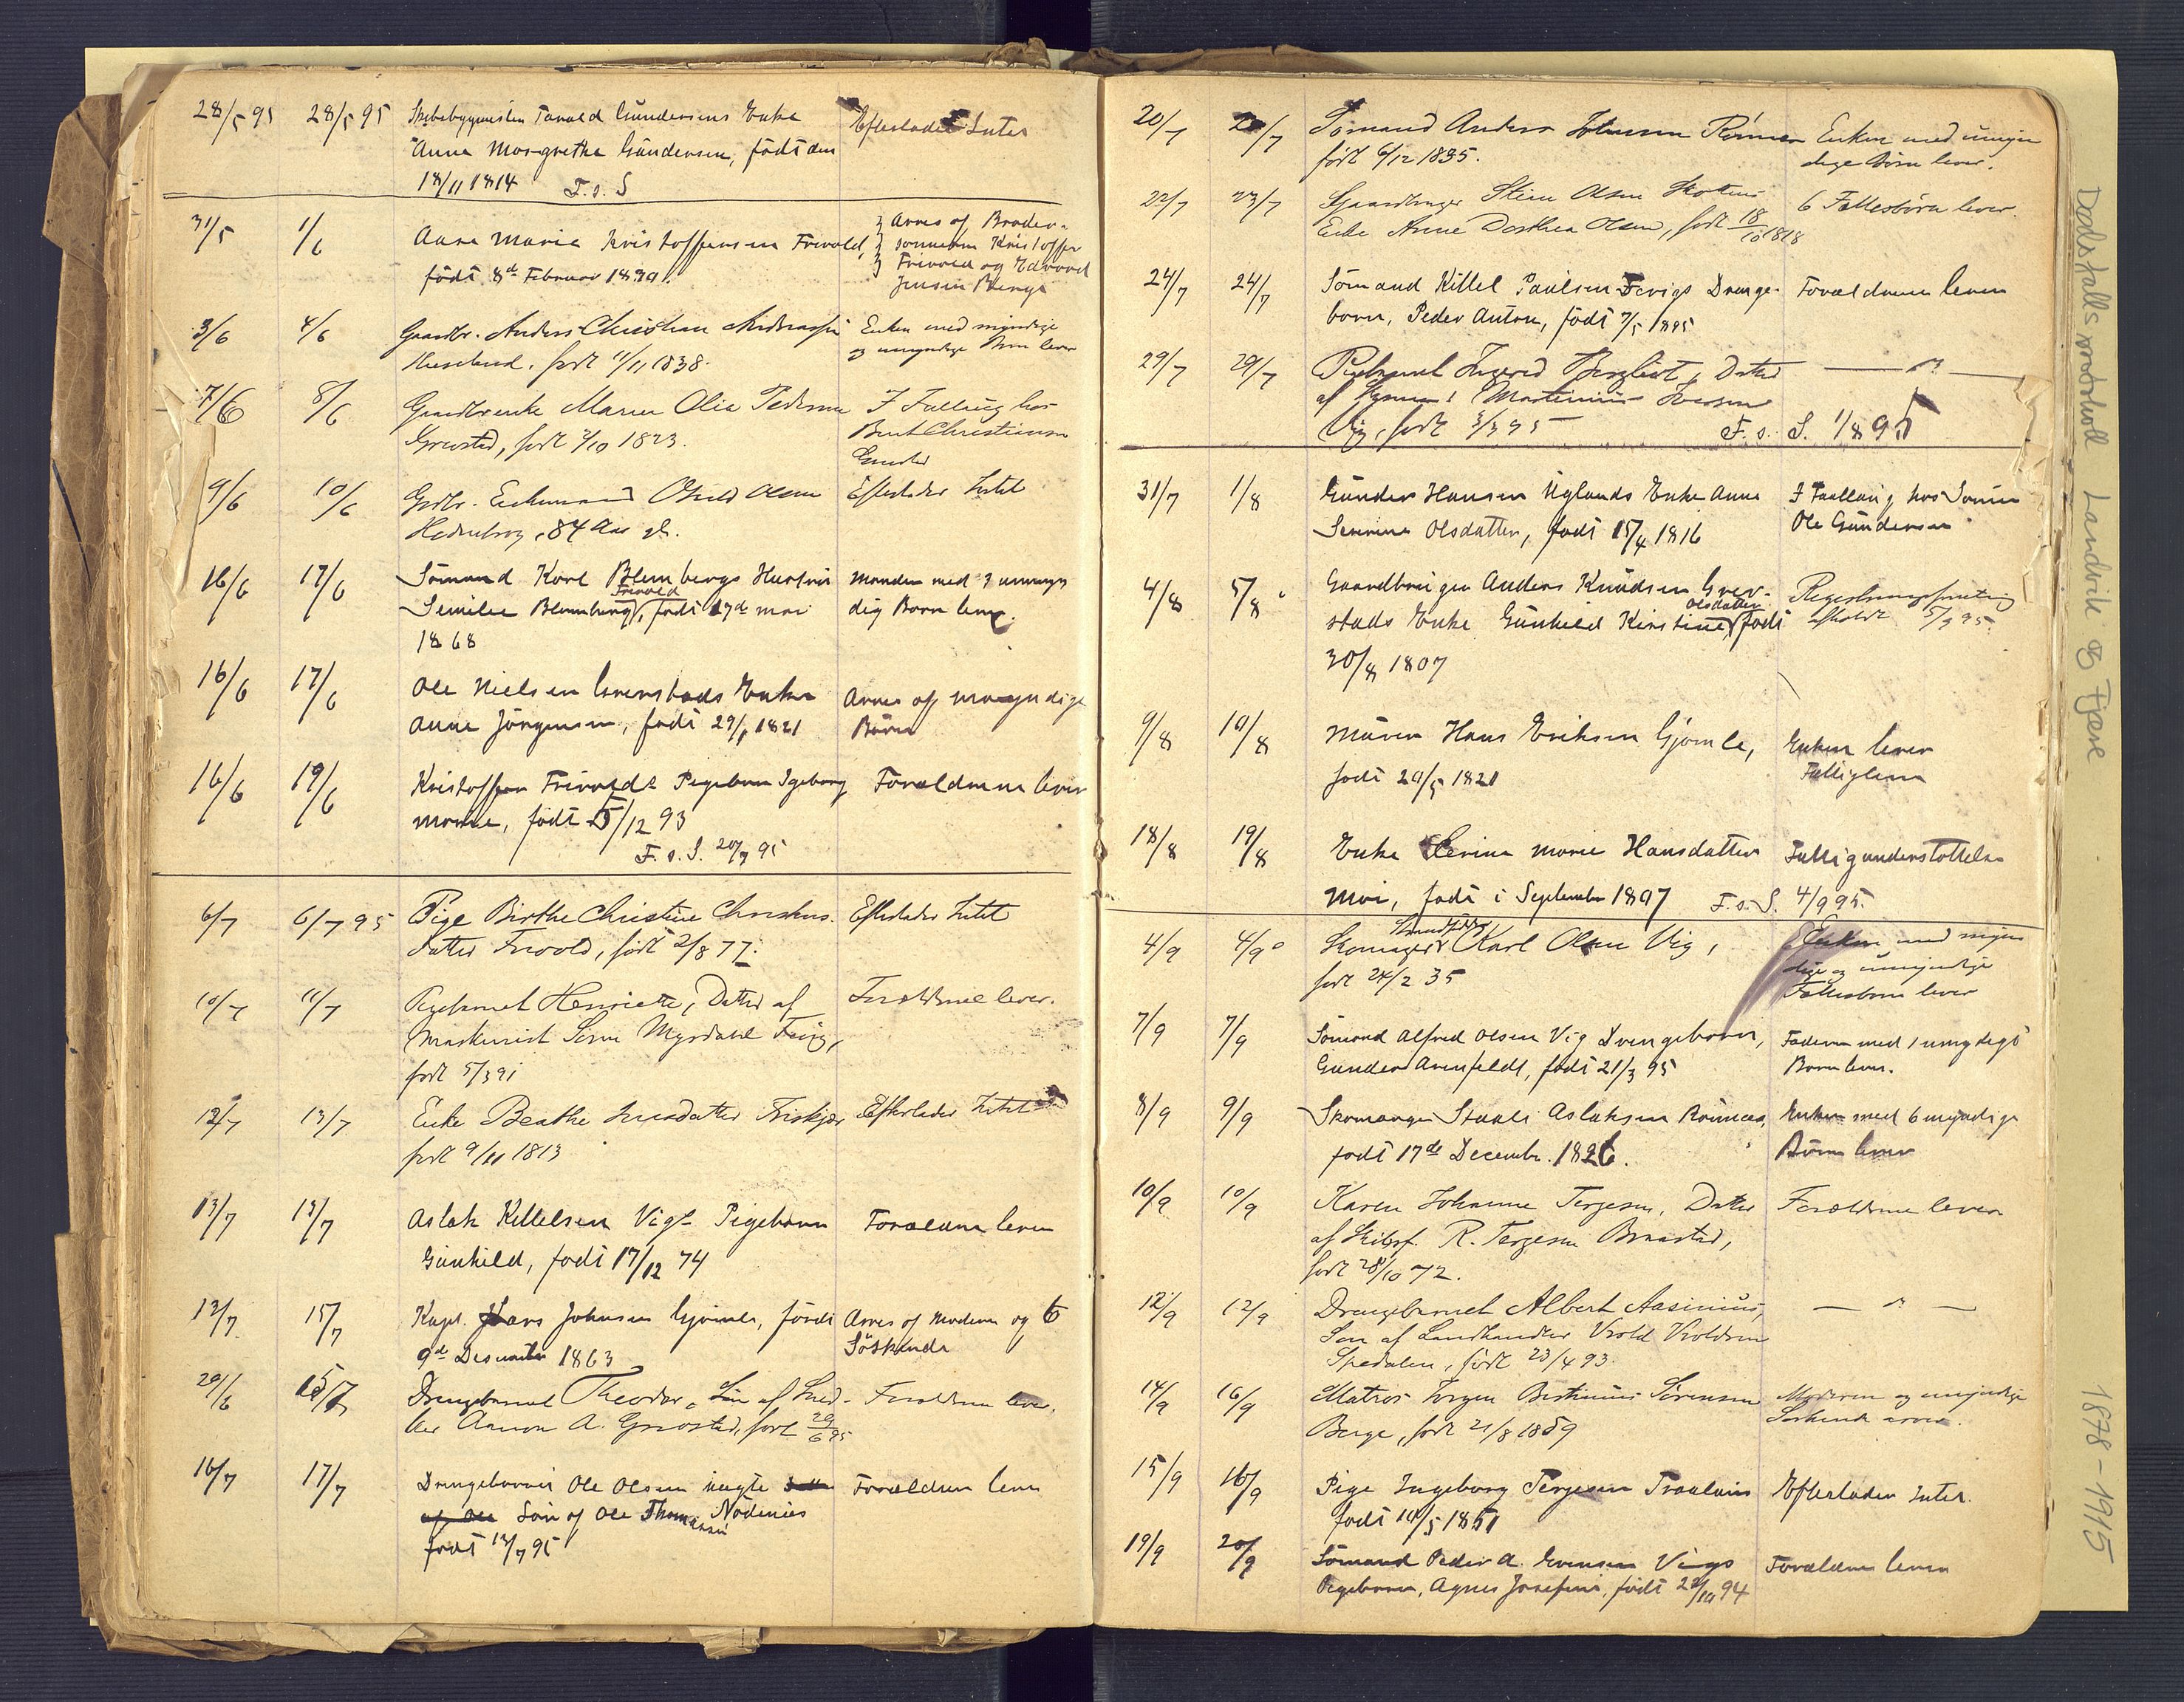 28/5 95 28/5 95 Skibsbygmester Tarald Gundersens Enke Efterlader Intet
Anna Margrethe Gundersen, födt den
18/11 1814 F. s. S
31/5 1/6 Anna Maria Kristoffersen Frivold, Arves af Broder-
sønnerne Kristoffer
Frivold og Edvard
Jensen Berge
födt 8de Februar
3/6 4/6 Gaardbr. Anders Christian Enken med myndige
og umyndige Børn lever
født 4/11 1838.
7/6 8/6 Gaardbrenke Maren Olia Pedersen I Fællig hos
Grevstad, født 2/10 1823. Bernt Christiansen
9/6 10/6 Grdbr. Enkemand Olsen Efterlader Intet
84 Aar gl.
16/6 17/6 Sömand Karl Blumbergs Hustru Manden med 3 umyn
Frivold
Blumberg, födt 17de mai dig Børn lever.
1868
16/6 17/6 Ole Nielsen Grevstads Enke Arves af myndige
Anne Jörgensen, födt 29/1 1821 Börn
16/6 19/6 Kristoffer Frivolds Pigebarn Igeborg Forældrene lever
marie, födt 5/12 93
F. s. S. 20/7 95
6/7 6/7 95 Pige Birthe Christine Christens- Efterlader Intet
datter Frivold, født 2/8 77.
10/7 11/7 Pigebarnet Henriette, Datter af Forældrene lever.
Maskinist Myrdahl
født 5/3 91
12/7 13/7 Enke Beathe Efterlader Intet
født 9/11 1813
13/7 13/7 Aslak Kittelsen Vigs Pigebarn Forældrene lever
Gunhild, födt 17/12 74
13/7 15/7 Kapt. Hans Johnsen Gjömle, födt Arves af Moderen og 6
9de Desember 1863 Söskende
29/6 15/7 Drengebarnet Theodor, Sön af Forældrene lever.
Aanon A. Grevstad, født 29/6 95
16/7 17/7 Drengebarnet Ole Olsen Forældrene lever
Sön af Ole Thomassen Nödenes
födt 13/7 95
20/7 20/7 Sömand Anders Johnsen Enken med umyn
født 6/12 1835. dige Børn lever.
22/7 23/7 Gaardbruger Stien Olsen 6 Fællesbörn lever.
Enke Anne Dorthea Olsen, født 18/10 1818
24/7 24/7 Sömand Kittel Paulsen Fevigs Drenge- Forældrene lever
barn, Peder Anton, födt 7/5 1895
29/7 29/7 Pigebarnet Ingerid Bergliot, Datter — " —
af Martinius Iversen
Vig, født 3/3 95 F. s. S. 1/8 95
31/7 1/8 Gunder Hansen Uglands Enke Anne I Faellaug hos Sönnen
Olsdatter, födt 15/4 1816 Ole Gundersen
4/8 5/8 Gaardbruger Anders Knudsen Grev- Registreringsforretning
Olsdatter
stads Enke Gunhild Kirstine födt afholdt 5/9 95.
30/8 1807
9/8 10/8 Murer Hans Eriksen Gjömle, Enken lever
födt 20/5 1820 Fattiglem
18/8 19/8 Enke Serine Marie Hansdatter Fattigunderstöttelse
Moi, födt i September 1807 F. s. S. 4/9 95.
4/9 4/9 Skomager Karl Olsen Vig, Enken med myn
født 24/2 35 dige og umyndige
Fællesbørn lever
7/9 7/9 Sömand Alfred Olsen Vig Drengebarn, Faderen med 1 umydigt
Gunder Arenfeldt, födt 21/3 95 Barn lever.
8/9 9/9 Skomager Staale Aslaksen Enken med 6 myndige
födt 17de Decembr. 1826. Börn lever
10/9 10/9 Karen Johanne Terjesen, Datter Forældrene lever
af Skibsf. R. Terjesen
født 28/10 72.
12/9 12/9 Drengebarnet Albert Aasinius, — " —
Søn af Landhandler Vrold Vroldsen
Spedalen, født 23/4 93.
14/9 16/9 Matros Jørgen Sörensen Moderen og umyndige
Berge, født 21/8 1859 Søskende arver.
15/9 16/9 Pige Ingeborg Terjesen Efterlader Intet.
födt 10/5 1851
19/9 20/9 Sömand Peder A. Evensen Vigs Forældrene lever
Pigebarn, Agnes Josefine, födt 94
Dødsfallsprotokoll Landvik og Fjære 1878-1915